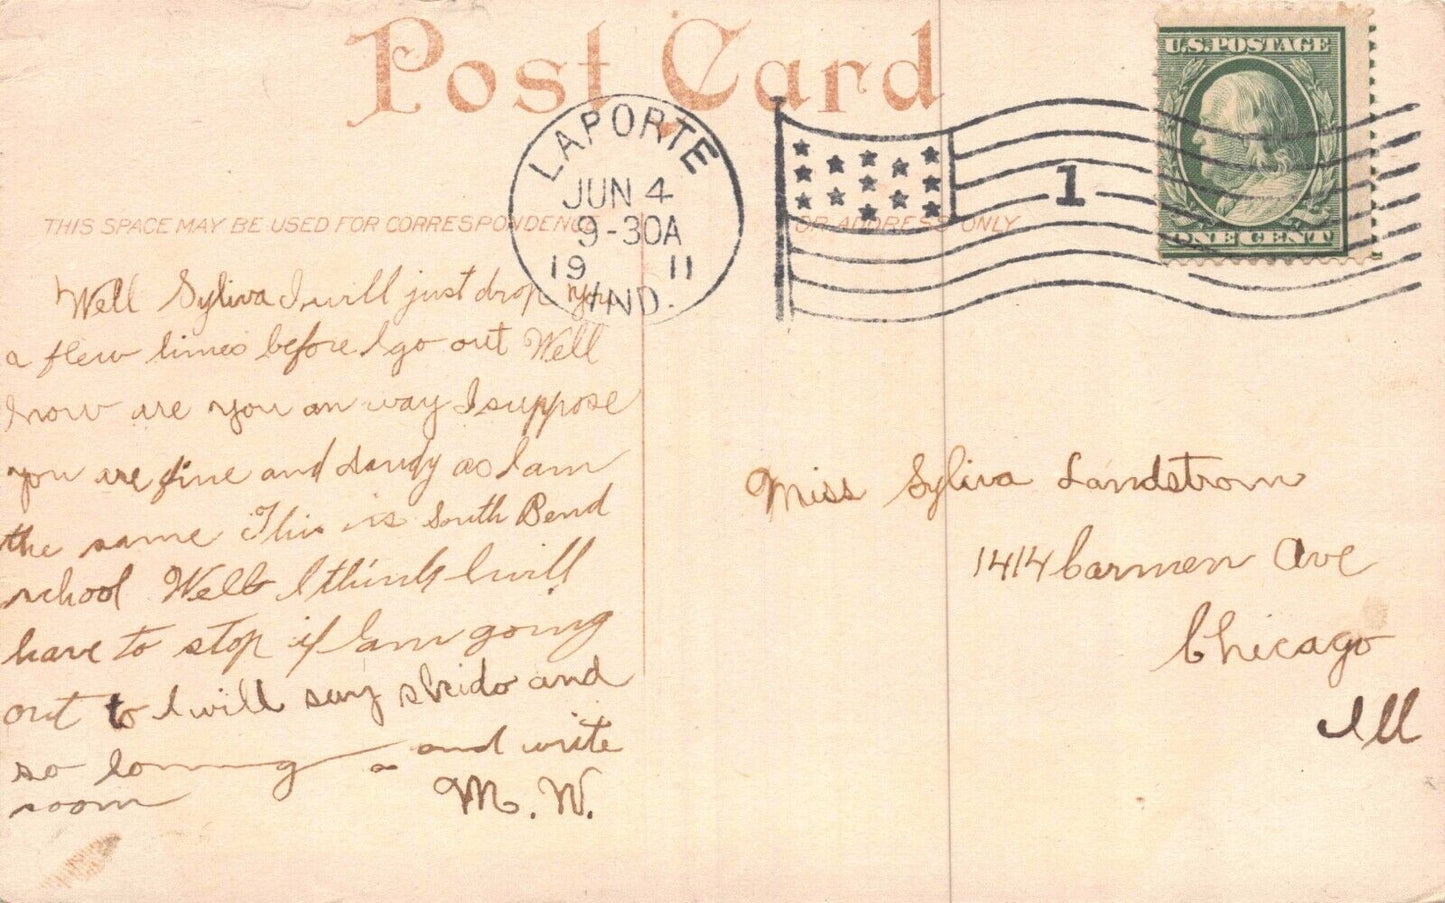 Post Card
U.S. POSTAGE
ONE CENT
LAPORTE
JUN 4
9-30A
19 11
IND.
1
THIS SPACE MAY BE USED FOR CORRESPONDENCE
OR ADDRESS ONLY
Well Syliva I will just drop you
a flew lines before I go out Well
how are you an way I suppose
you are fine and dandy as I am
the same This is South Bend
school Well I think I will
have to stop if I am going
out to I will say skido and
so long and write
soon M. W.
Miss Syliva Landstrom
1414 Carmen Ave
Chicago
Ill